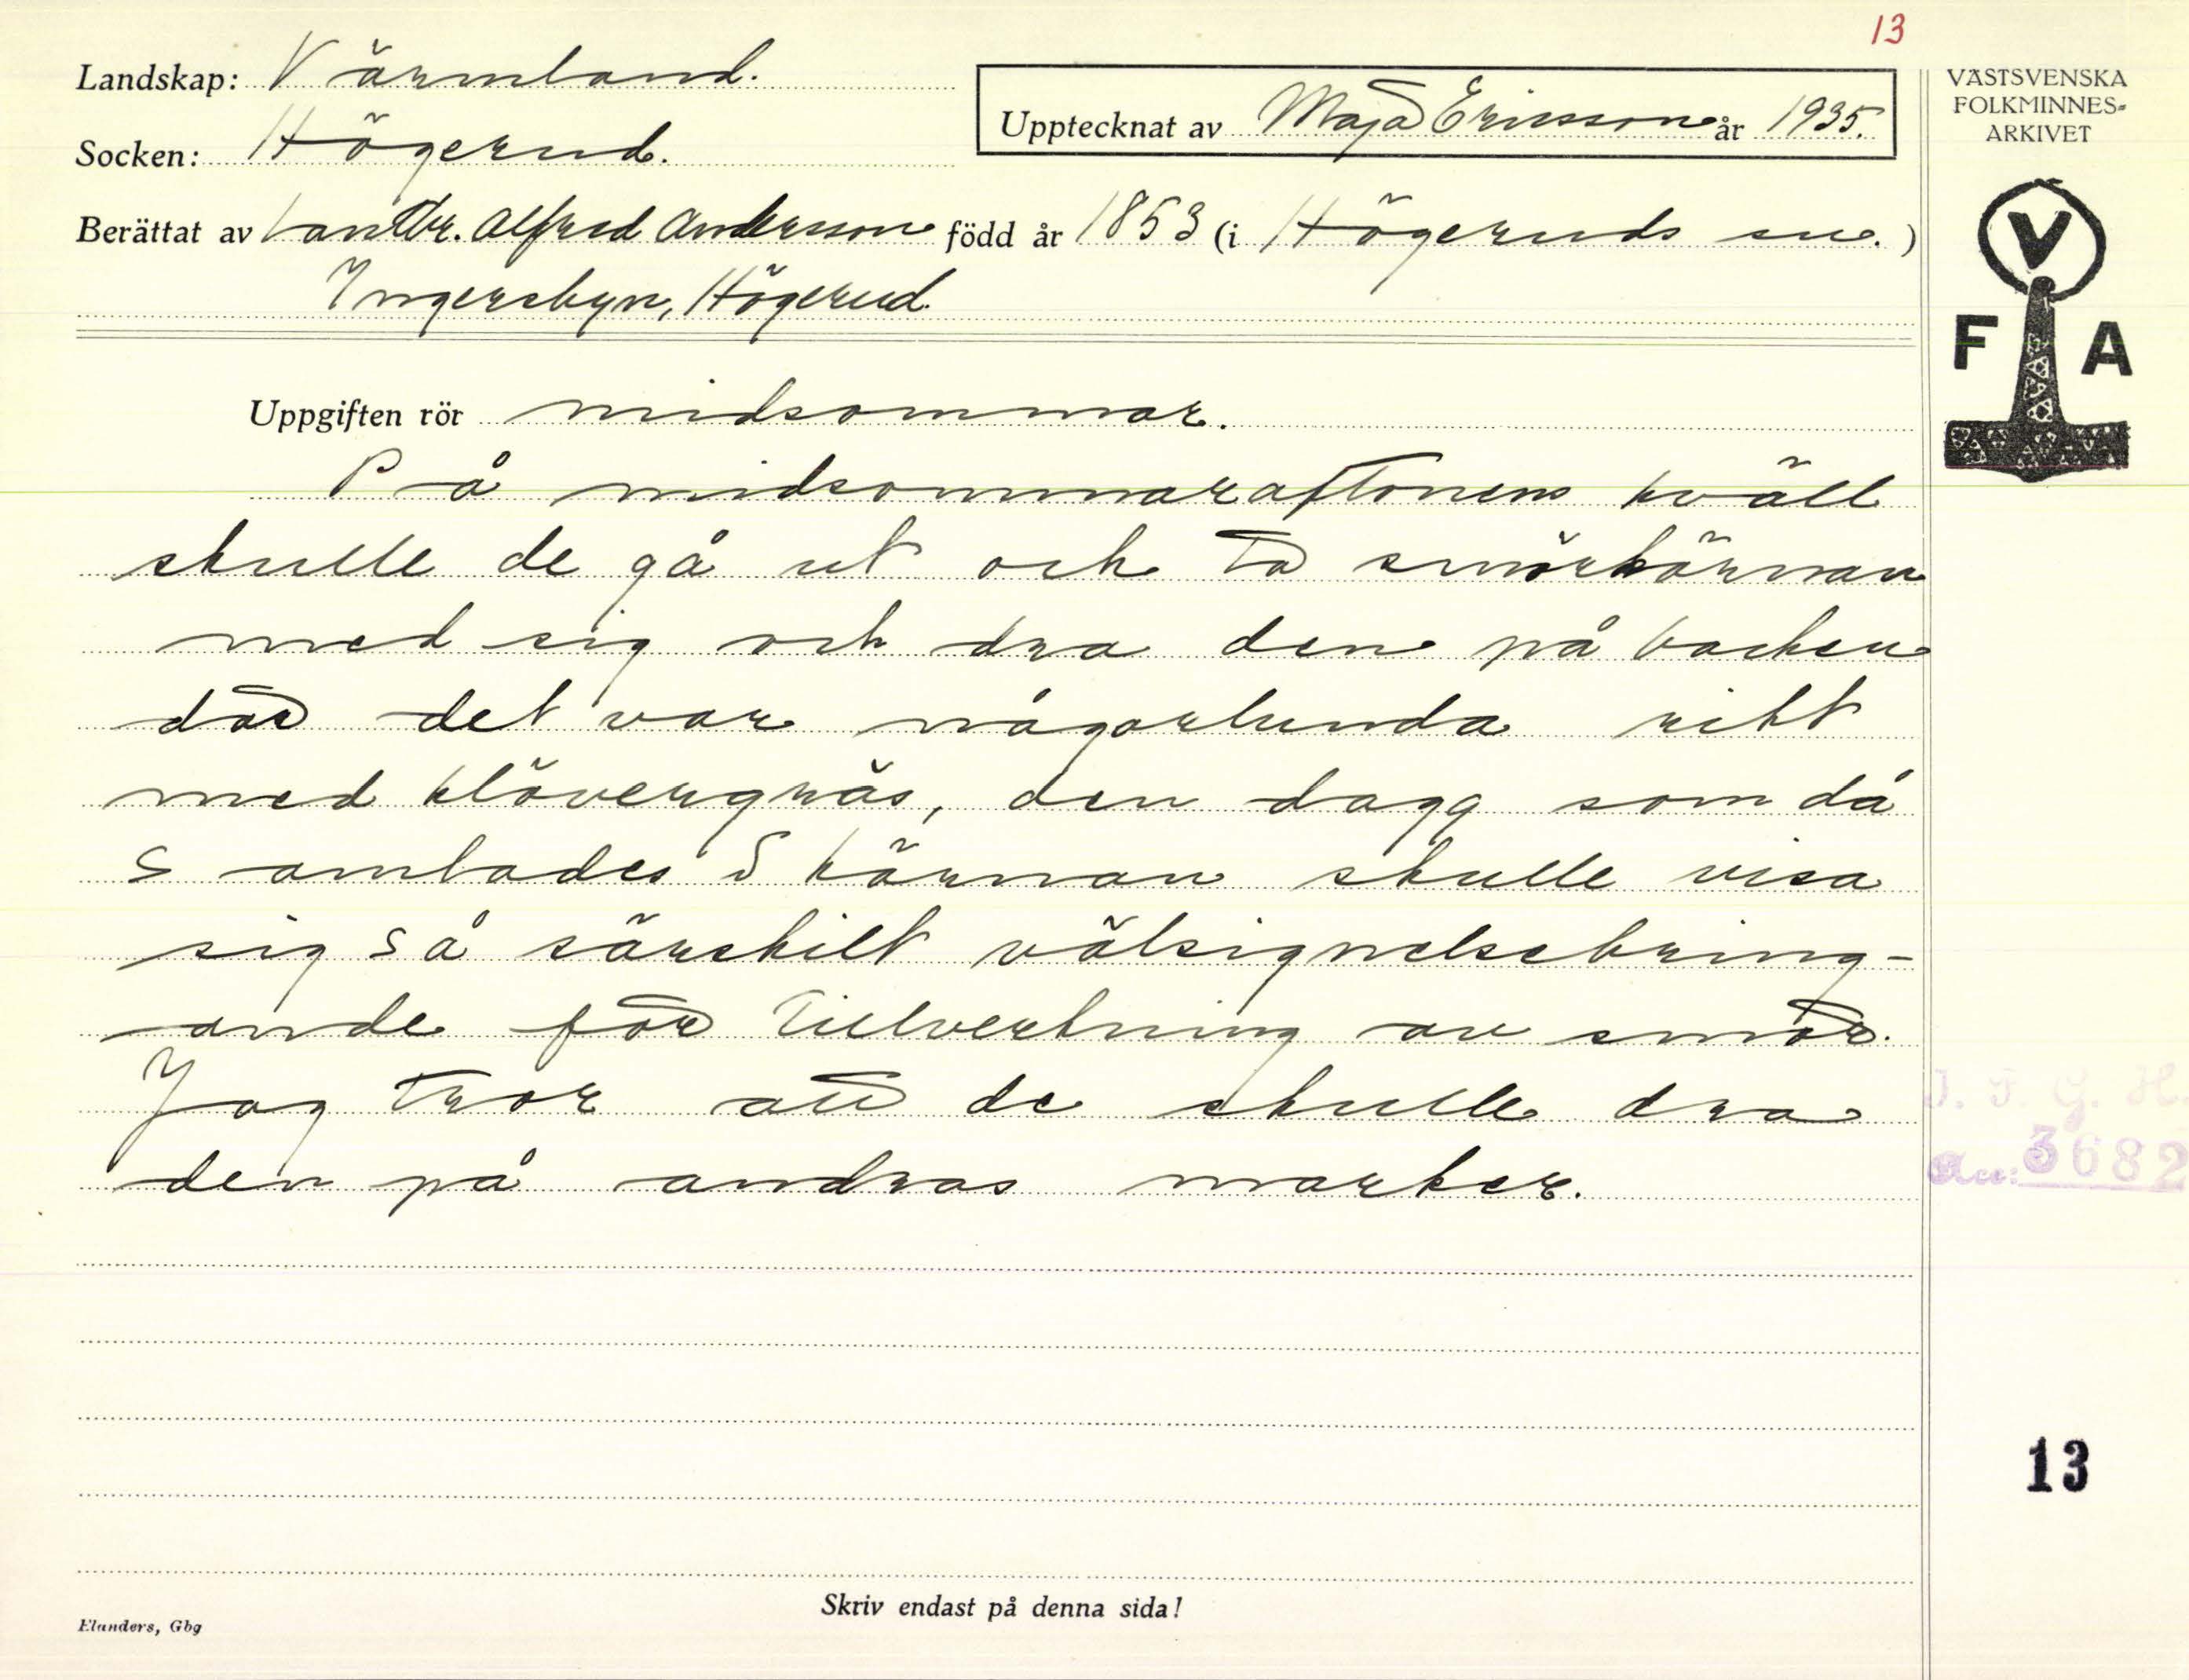 13
Landskap: Värmland.
Upptecknat av Maja Ericsson år 1935.
VÄSTSVENSKA
FOLKMINNES-
ARKIVET
Socken: Högerud.
Berättat av Lantbr. Alfred Andersson född år 1853 (i Högeruds sn.)
Ingersbyn, Högerud.
V
F A
Uppgiften rör midsommar.
På midsommaraftonens kväll
skulle de gå ut och ta smörkärnan
med sig och dra den på backen
där det var någorlunda rikt
med klövergräs, den dagg som då
samlades i kärnan skulle visa
sig så särskilt välsignelsebring-
ande för tillverkning av smör.
Jag tror att de skulle dra
den på andras marker.
I. F. G. H.
Acc: 3682
13
Skriv endast på denna sida!
Elanders, Gbg